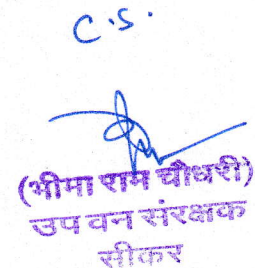 C.S.
(भीमा राम चौधरी)
उप वन संरक्षक
सीकर